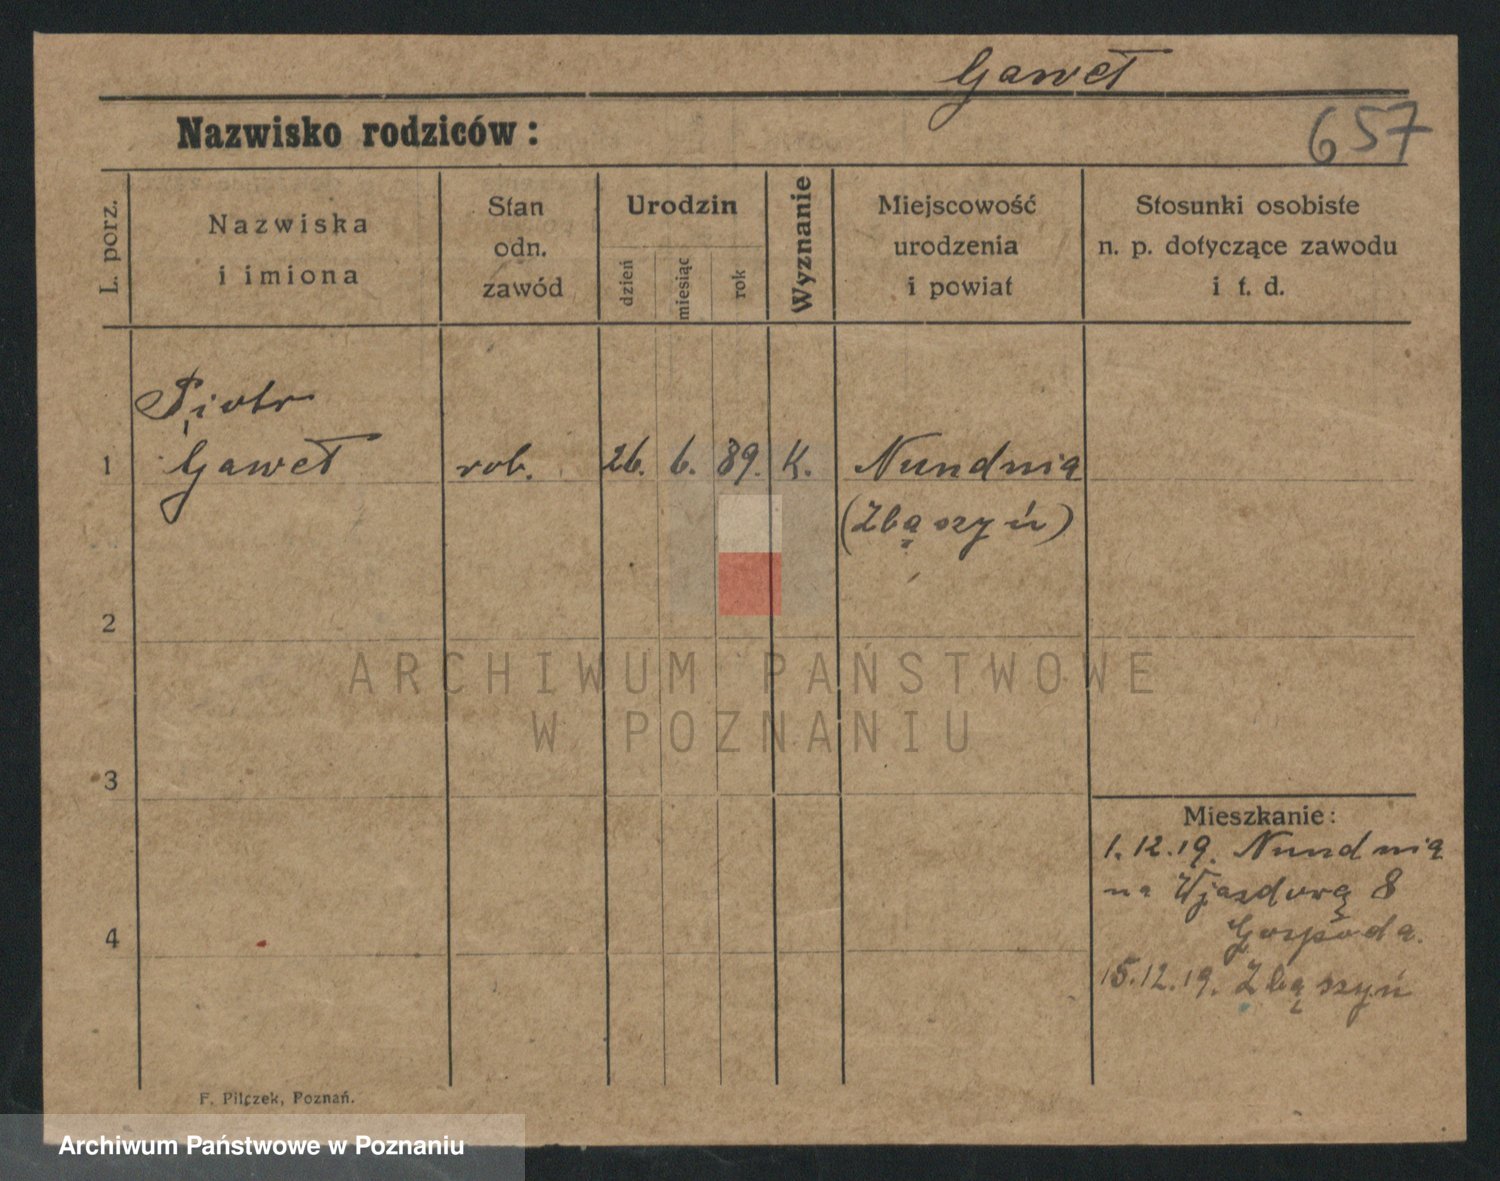 Gaweł
Nazwisko rodziców:
657
L. porz.
Nazwiska
i imiona
Stan
odn.
zawód
Urodzin
dzień
miesiąc
rok
Wyznanie
Miejscowość
urodzenia
i powiat
Stosunki osobiste
n. p. dotyczące zawodu
i t. d.
Piotr
1 Gaweł rob. 26. 6. 89. K. Nundnia
(Zbąszyń)
2
ARCHIWUM PAŃSTWOWE
W POZNANIU
3
Mieszkanie:
1.12.19. Nundnia
na Wjazdową 8
Gospoda.
4
15.12.19. Zbąszyń
F. Pilczek, Poznań.
Archiwum Państwowe w Poznaniu